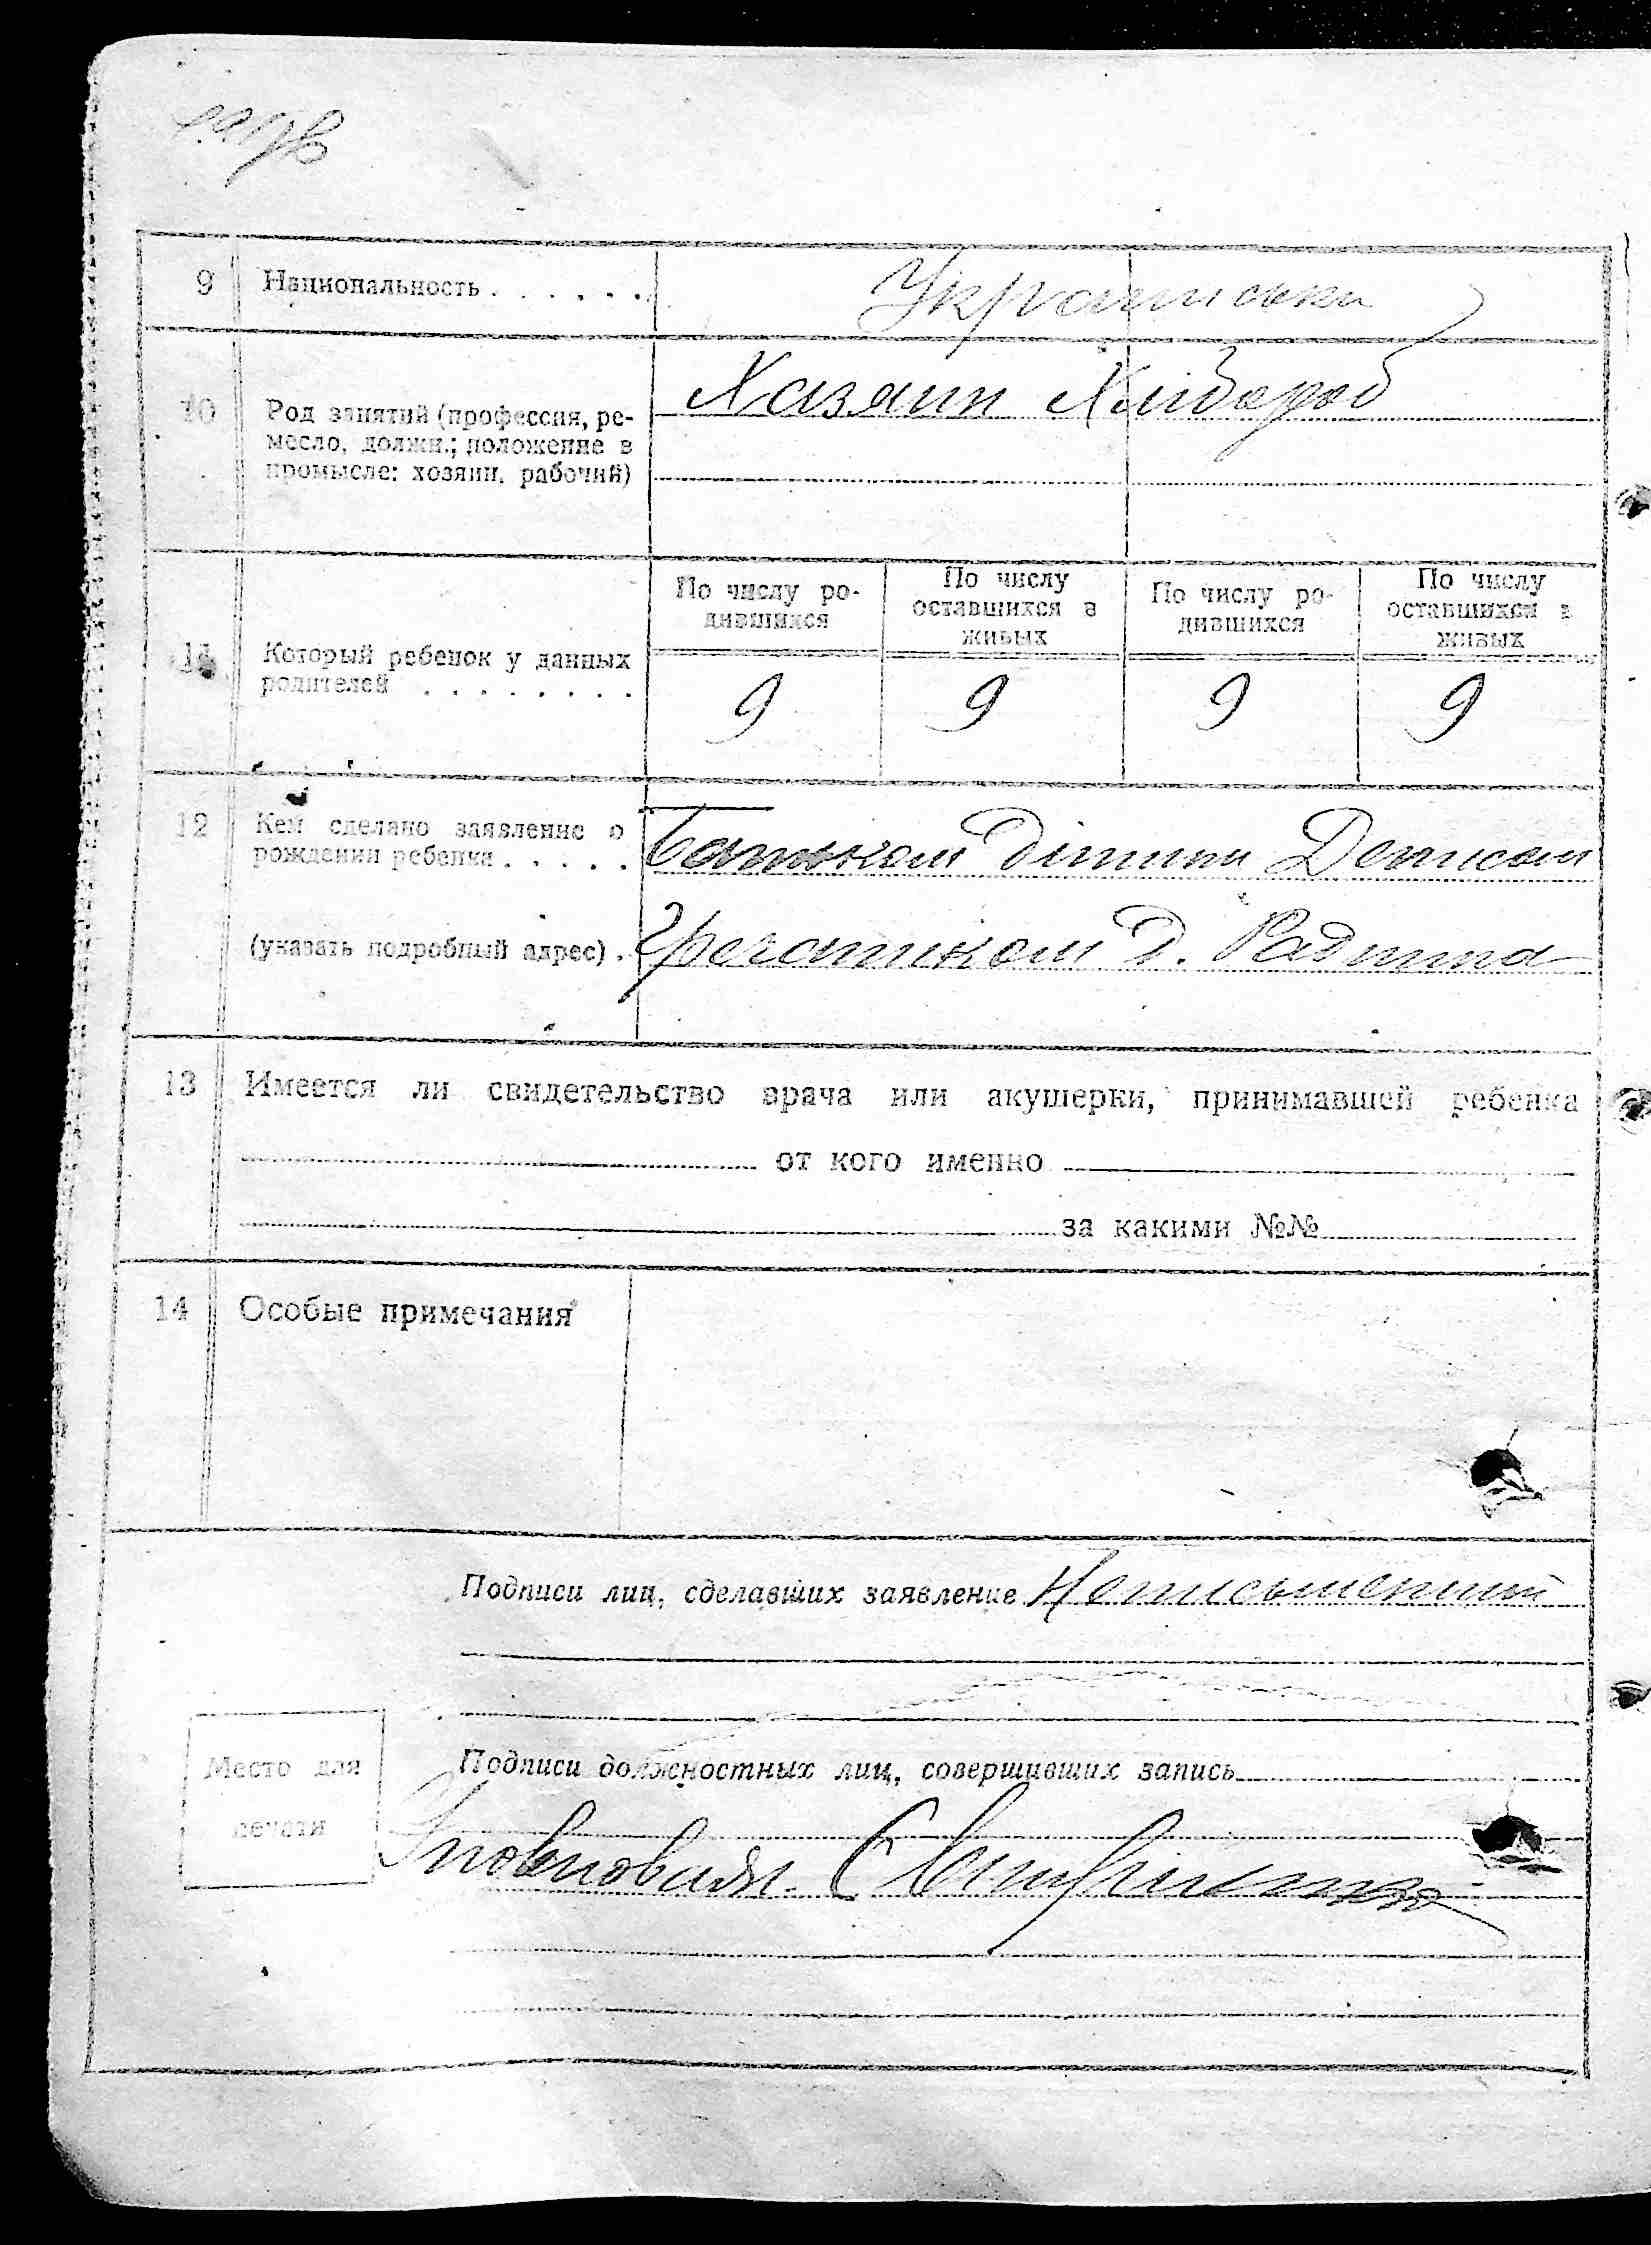 9 Национальность . . . . . . Українськи
10 Род занятий (профессия, ре-
месло, должн.; положение в
промысле: хозяин, рабочий)
Хазяин Хлібороб
11 Который ребенок у данных
родителей . . . . . . . .
По числу ро-
дившихся
По числу
оставшихся в
живых
По числу ро-
дившихся
По числу
оставшихся в
живых
9 9 9 9
12 Кем сделано заявление о
рождении ребенка . . . . . Батьком дитини Денисом
(указать подробный адрес) . Гречаником Д.
13 Имеется ли свидетельство врача или акушерки, принимавшей ребенка
от кого именно
за какими №№
14 Особые примечания
Подписи лиц, сделавших заявление Неписьменний
Подписи должностных лиц, совершивших запись
Место для
печати